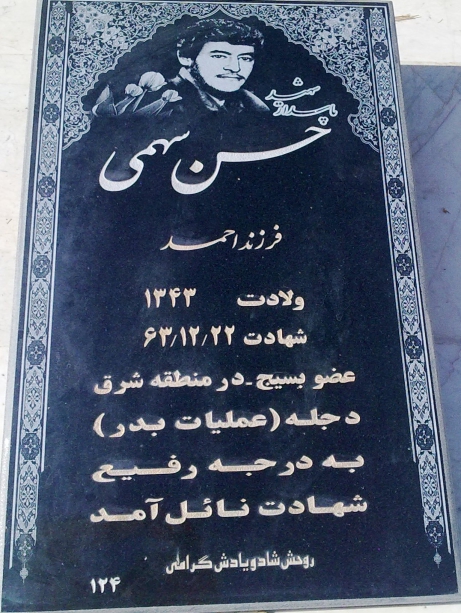 شهید
پاسدار
حسن سهمی
فرزند احمد
ولادت ۱۳۴۳
شهادت ۶۳/۱۲/۲۲
عضو بسیج - در منطقه شرق
دجله (عملیات بدر)
به درجه رفیع
شهادت نائل آمد
روحش شاد و یادش گرامی
۱۲۴